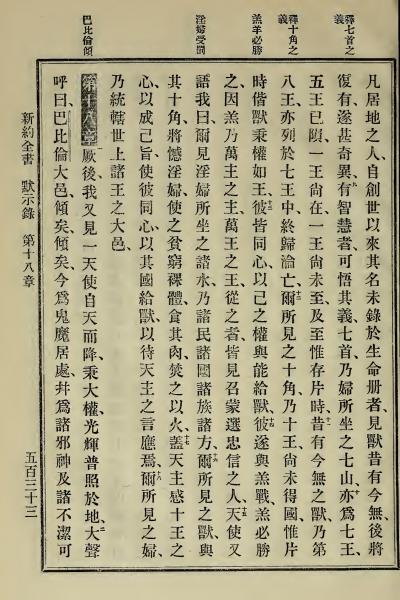 釋七首之
義
釋十角之
義
羔羊必勝
淫婦受罰
巴比倫傾
凡居地之人、自創世以來、其名未錄於生命册者、見獸昔有今無、後將
復有、遂甚奇異、九有智慧者、可悟其義、七首、乃婦所坐之七山、十亦爲七王、
五王已隕、一王尚在、一王尚未至、及至、惟存片時、十一昔有今無之獸、乃第
八王、亦列於七王中、終歸淪亡、十二爾所見之十角、乃十王、尚未得國、惟片
時偕獸秉權如王、十三彼皆同心、以己之權與能給獸、十四彼遂與羔戰、羔必勝
之、因羔乃萬主之主、萬王之王、從之者、皆見召蒙選忠信之人、十五天使又
語我曰、爾見淫婦所坐之諸水、乃諸民諸國諸族諸方、十六爾所見之獸與
其十角、將憾淫婦、使之貧窮裸體、食其肉、焚之以火、十七蓋天主感十王之
心、以成己旨、使彼同心、以其國給獸、以待天主之言應焉、十八爾所見之婦、
乃統轄世上諸王之大邑、
第十八章 一厥後我又見一天使自天而降、秉大權、光輝普照於地、二大聲
呼曰、巴比倫大邑、傾矣傾矣、今爲鬼魔居處、幷爲諸邪神及諸不潔可
新約全書 默示錄 第十八章 五百三十三